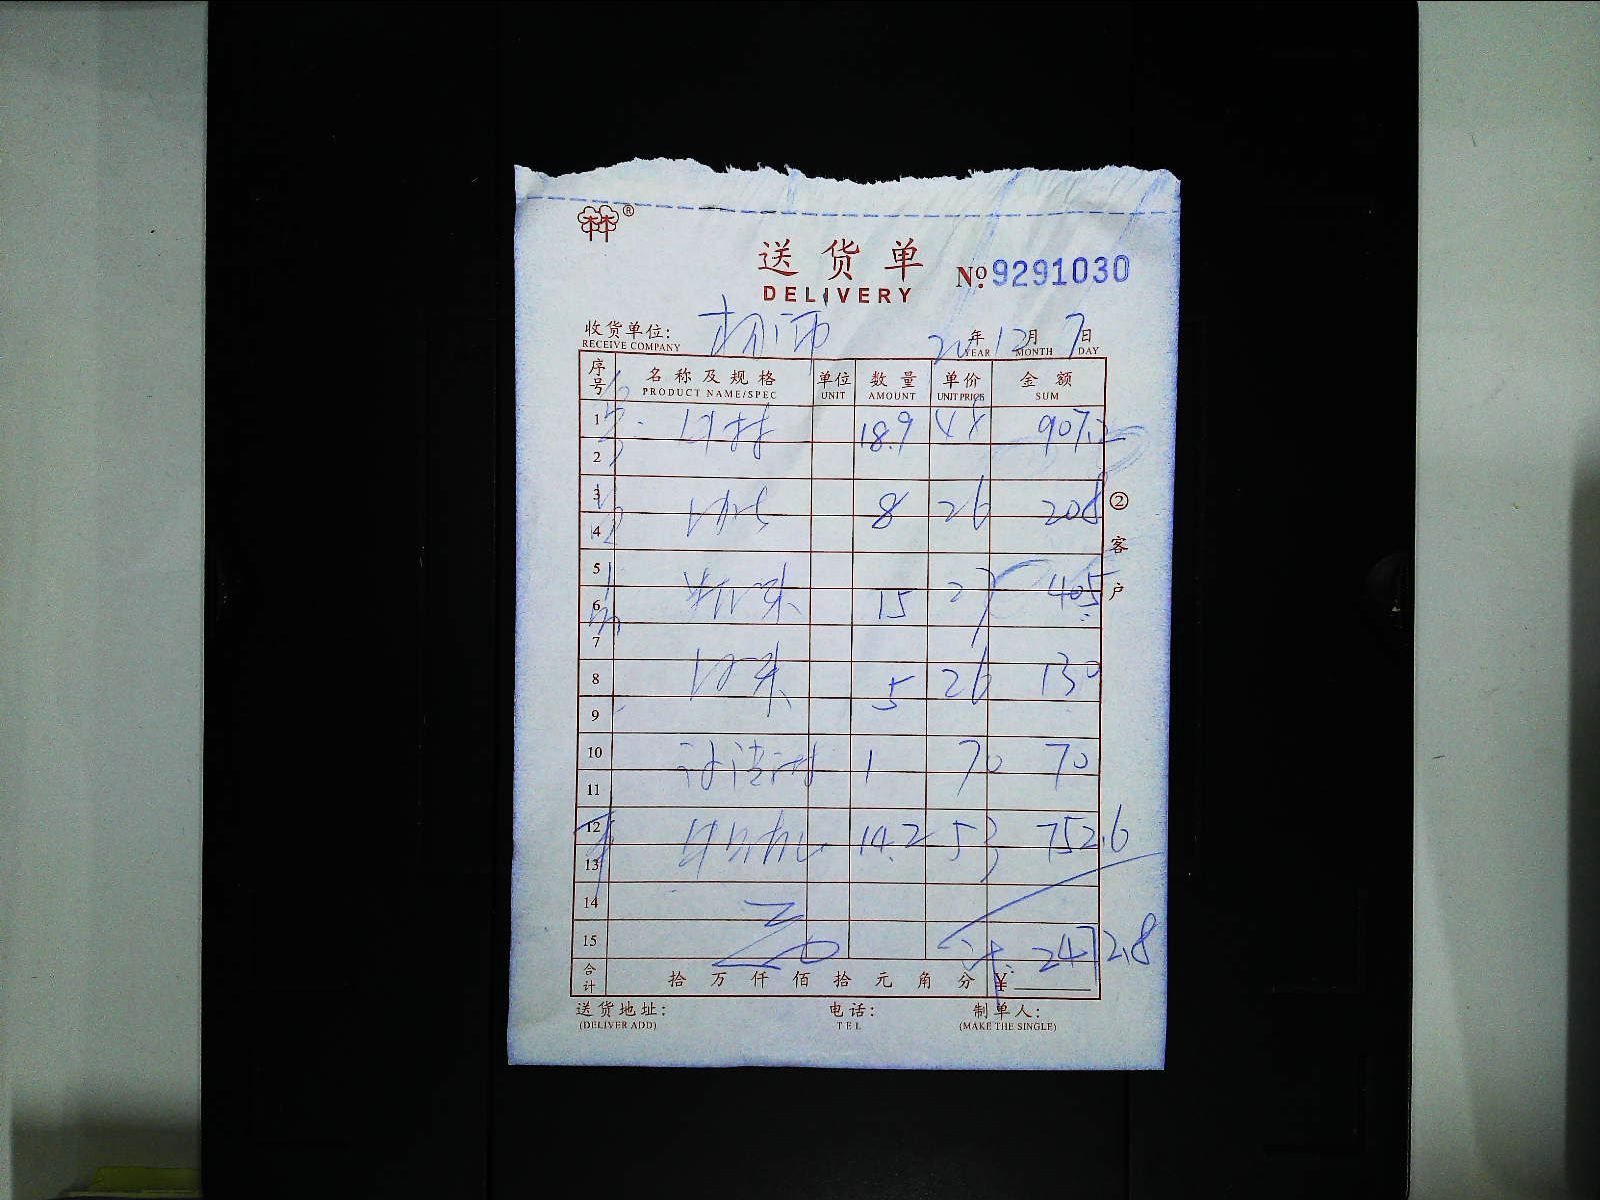 林 ®
送货单
DELIVERY
№ 9291030
收货单位:
RECEIVE COMPANY
20年12月7日
YEAR MONTH DAY
序号 名称及规格 单位 数量 单价 金额
PRODUCT NAME/SPEC UNIT AMOUNT UNIT PRICE SUM
1 18.9 48 907.2
2
3 8 26 208
4
5
6 15 27 405
7
8 5 26 130
9
10 1 70 70
11
12 14.2 53 752.6
13
14
15 计: 2472.8
合计 拾 万 仟 佰 拾 元 角 分 ¥
②客户
送货地址: 电话: 制单人:
(DELIVER ADD) TEL (MAKE THE SINGLE)